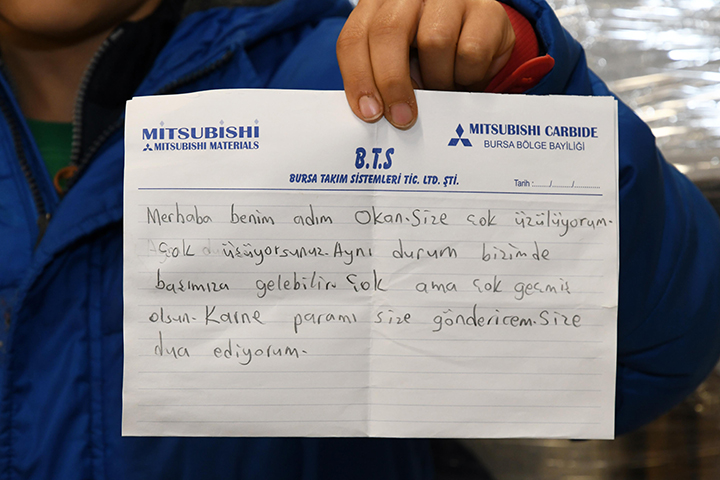 MITSUBISHI
MITSUBISHI MATERIALS
MITSUBISHI CARBIDE
BURSA BÖLGE BAYİLİĞİ
B.T.S
BURSA TAKIM SİSTEMLERİ TİC. LTD. ŞTİ.
Tarih :....../....../............
Merhaba benim adım Okan. Size çok üzülüyorum.
çok üşüyorsunuz. Aynı durum bizimde
başımıza gelebilir. Çok ama çok geçmiş
olsun. Karne paramı size göndericem. Size
dua ediyorum.